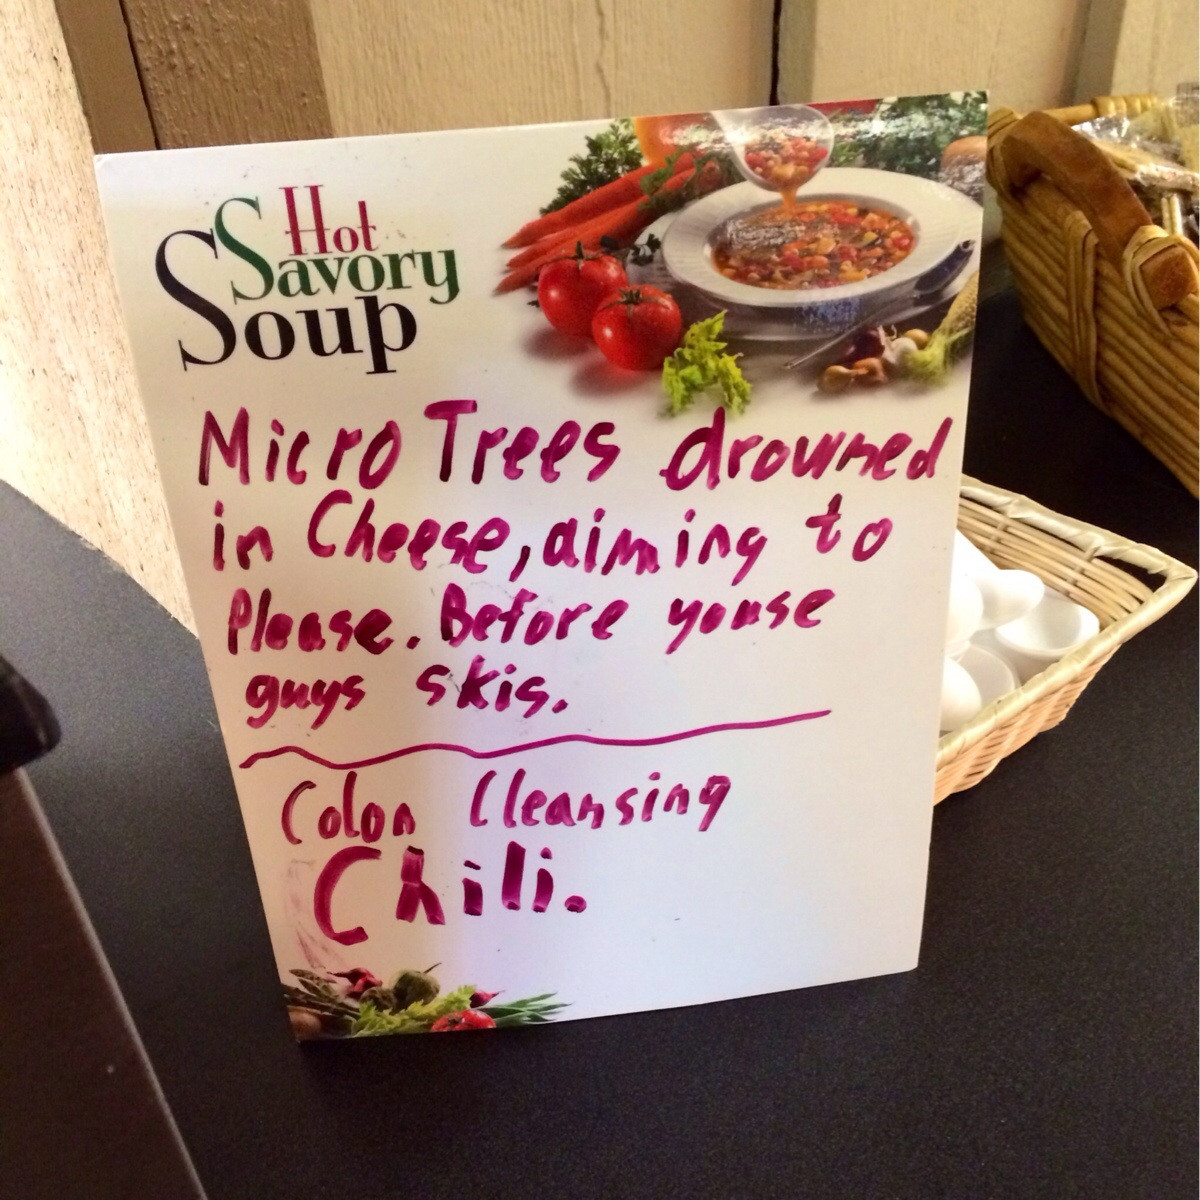 Hot
Savory
Soup
Micro Trees drowned
in Cheese, aiming to
Please. Before youse
guys skis.
Colon Cleansing
Chili.